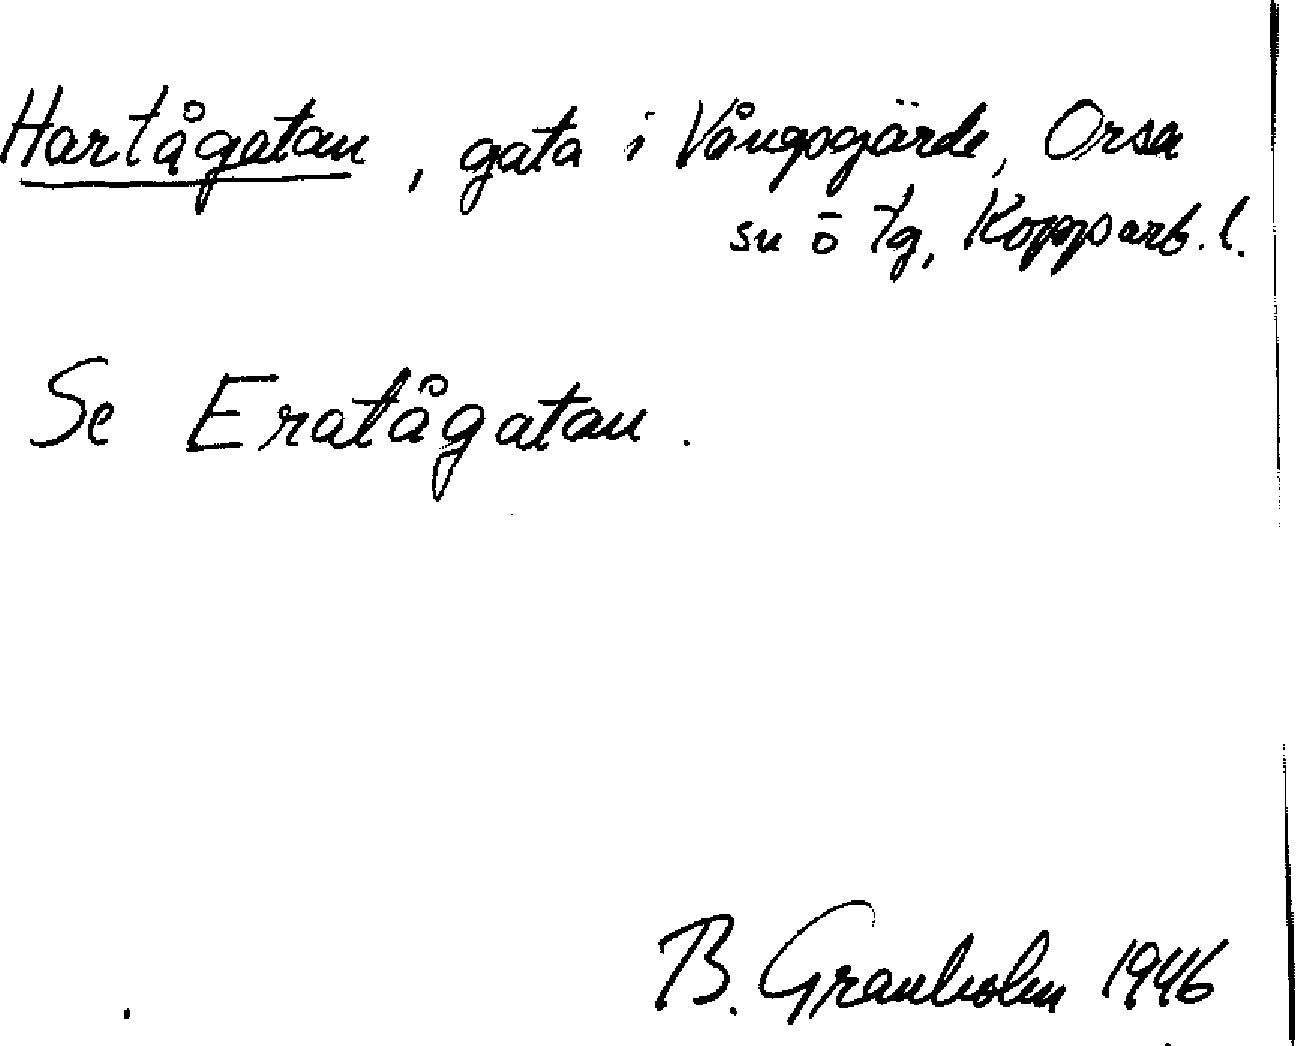 Hartågatan, gata i Vångsgärde, Orsa
sn ö tg, Kopparb. l.
Se Eratågatan.
B. Granholm 1946